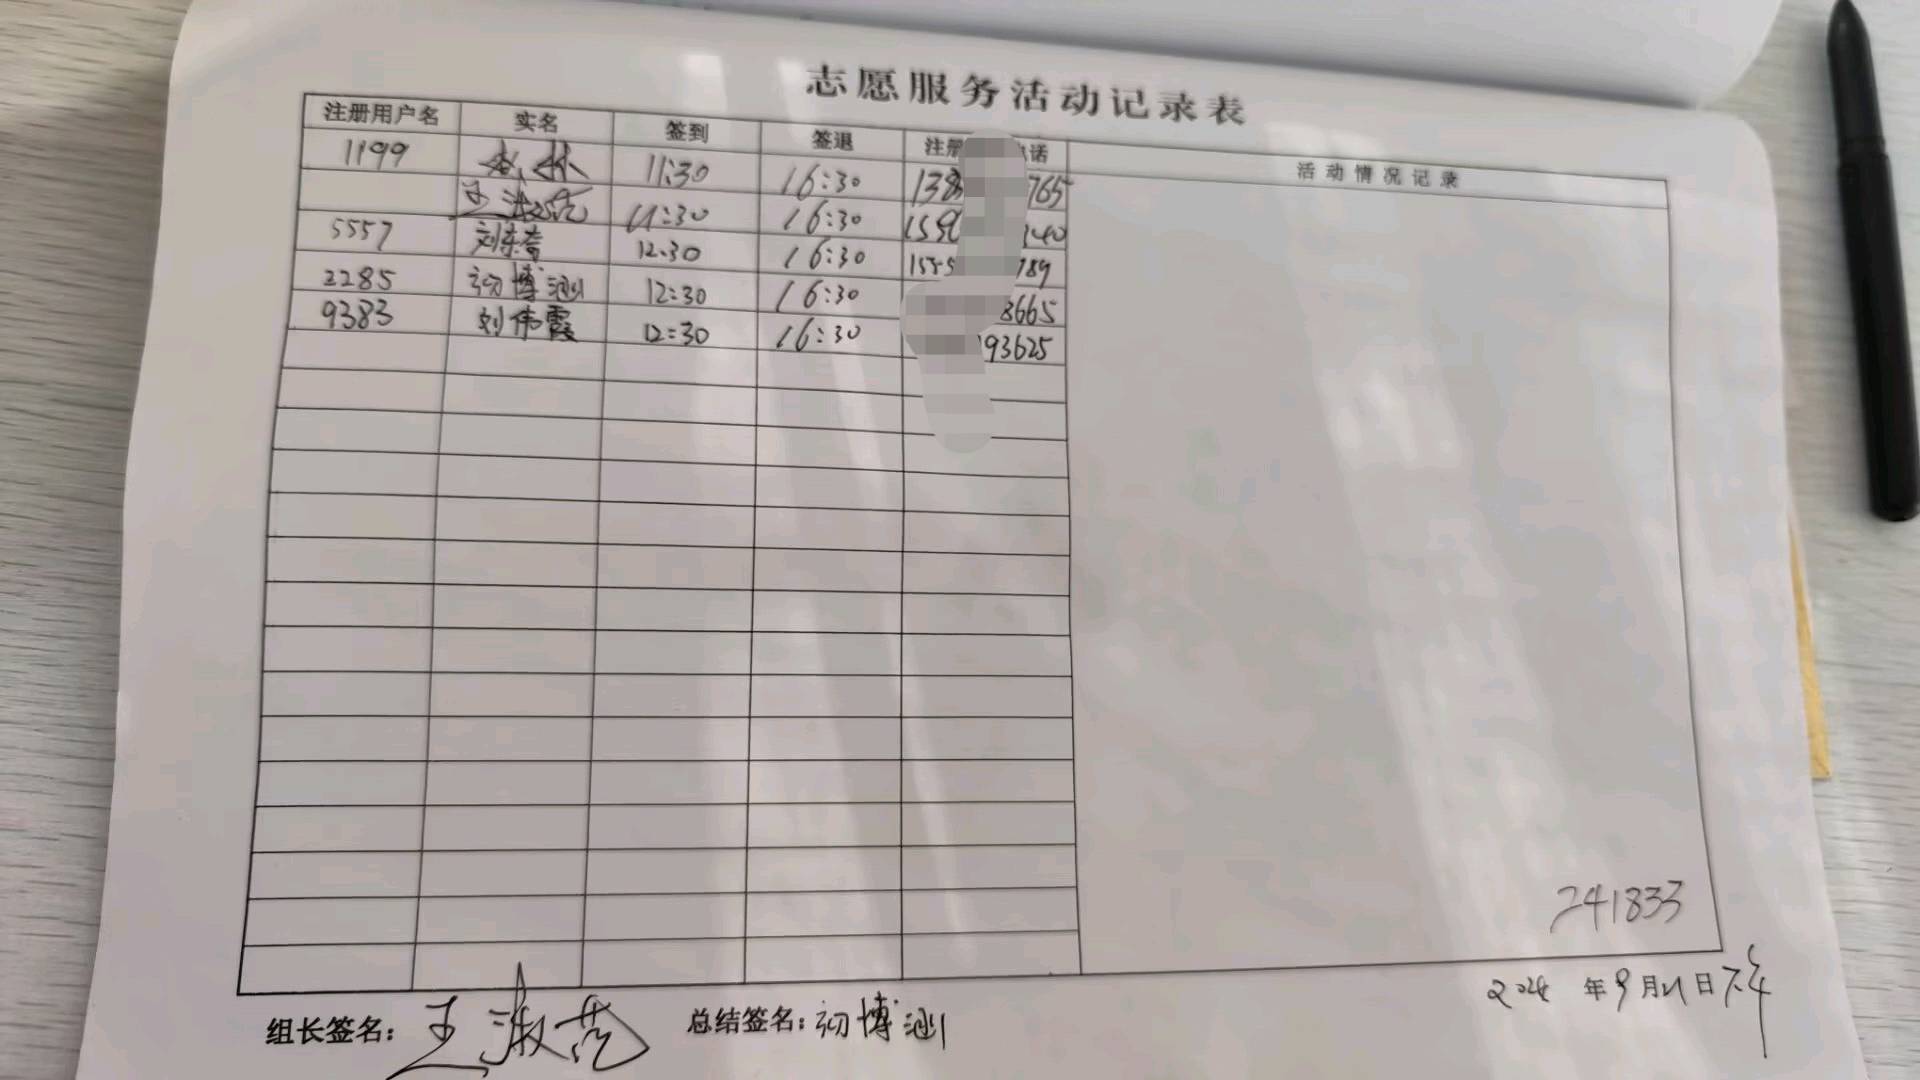 志愿服务活动记录表
注册用户名 实名 签到 签退 注册 电话 活动情况记录
1199 林 11:30 16:30 138 765
王淑范 11:30 16:30 159 340
5557 刘东 12:30 16:30 1555 789
2285 初博涵 12:30 16:30 8665
9383 刘伟霞 12:30 16:30 193625
241833
2024 年9月21日下午
组长签名: 王淑范 总结签名: 初博涵